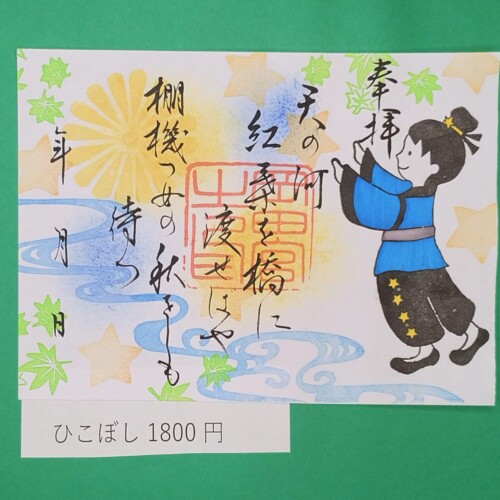 奉拝
天の河
紅葉を橋に
渡せはや
棚機つめの秋をしも
待つ
年 月 日
ひこぼし 1800円